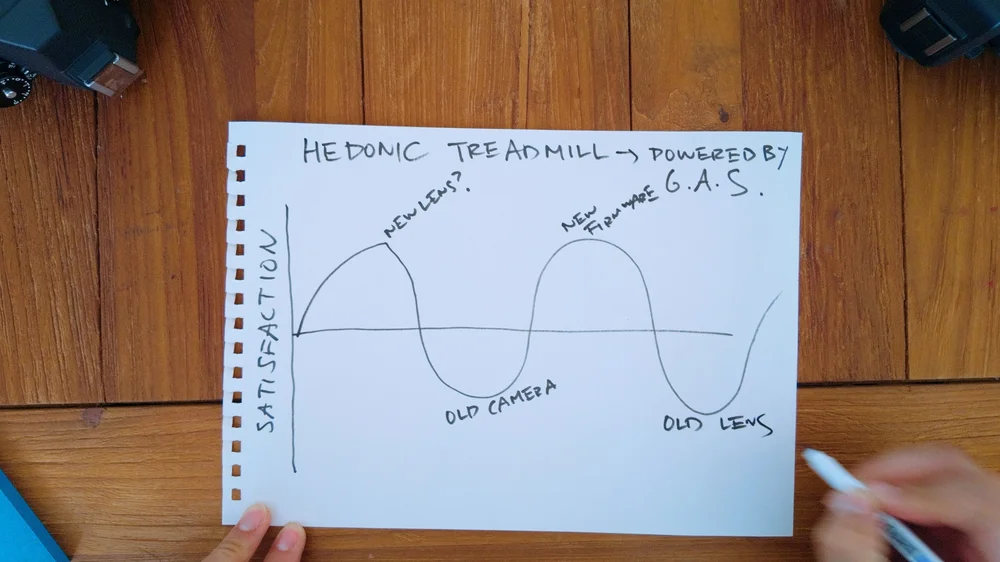 HEDONIC TREADMILL → POWERED BY
G.A.S.
NEW LENS?
NEW
FIRMWARE
SATISFACTION
OLD CAMERA
OLD LENS